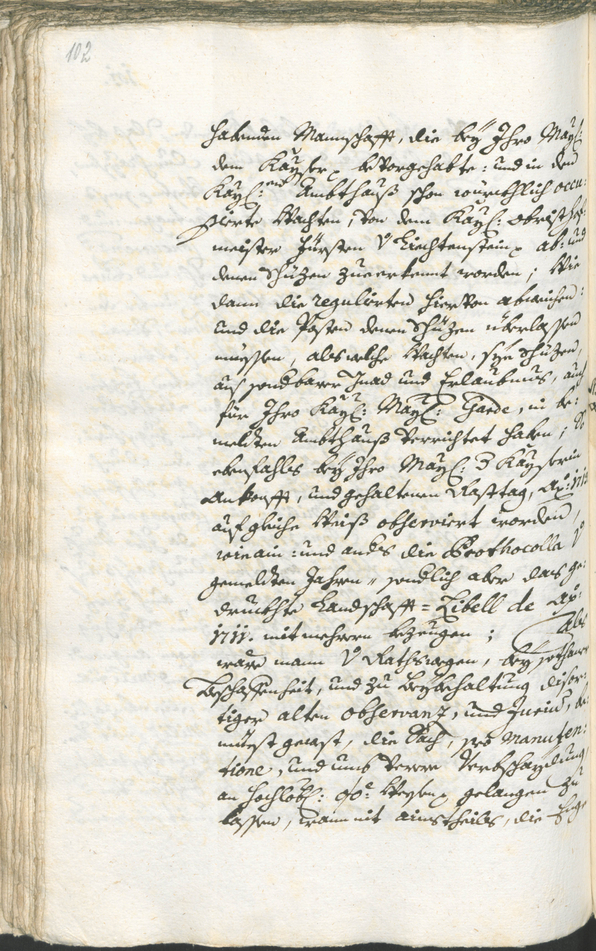 102
habenden Mannschafft, die bey Ihro May:
dem Kayser bevorgehabte: und in dem
Kayl:en Ambthauß schon würckhlich occu-
pierte Wachten, von dem Kayl: obristhof-
meister Fürsten v Liechtenstein ab: und
denen Schüzen zuerkennt worden; wie
dann die regulierten hiervon abweichen:
und die Posten denen Schüzen überlassen
müessen, als welche Wachten, sye Schüzen,
auß sonderbarer Gnad und Erlaubnus, auch
für Ihro Kayl: Mayl: Garde, in be-
melten Ambthauß verrichtet haben;
ebenfahls bey Ihro Mayl: d Kayserin
Ankonfft, und gehaltenen Rasttag, Ao: 1713
auf gleiche Weiß observiert worden,
wie ain: und anders die Prothocolla v
gemelten Jahren, sondlich aber das ge-
druckhte Landschafft= Libell de Ao:
1711. mit mehrern bezeugen; Als
ware mann v Rathswegen, bey sothaner
Beschaffenheit, und zu Beybehaltung diser
tiger alten observanz, und
müest, die Sach, pro manuten-
tione, und umb verrere Verbschaydung
an Hochlöbl: o:ö: Wesen gelangen zu
lassen, wann nit ainstheils, die